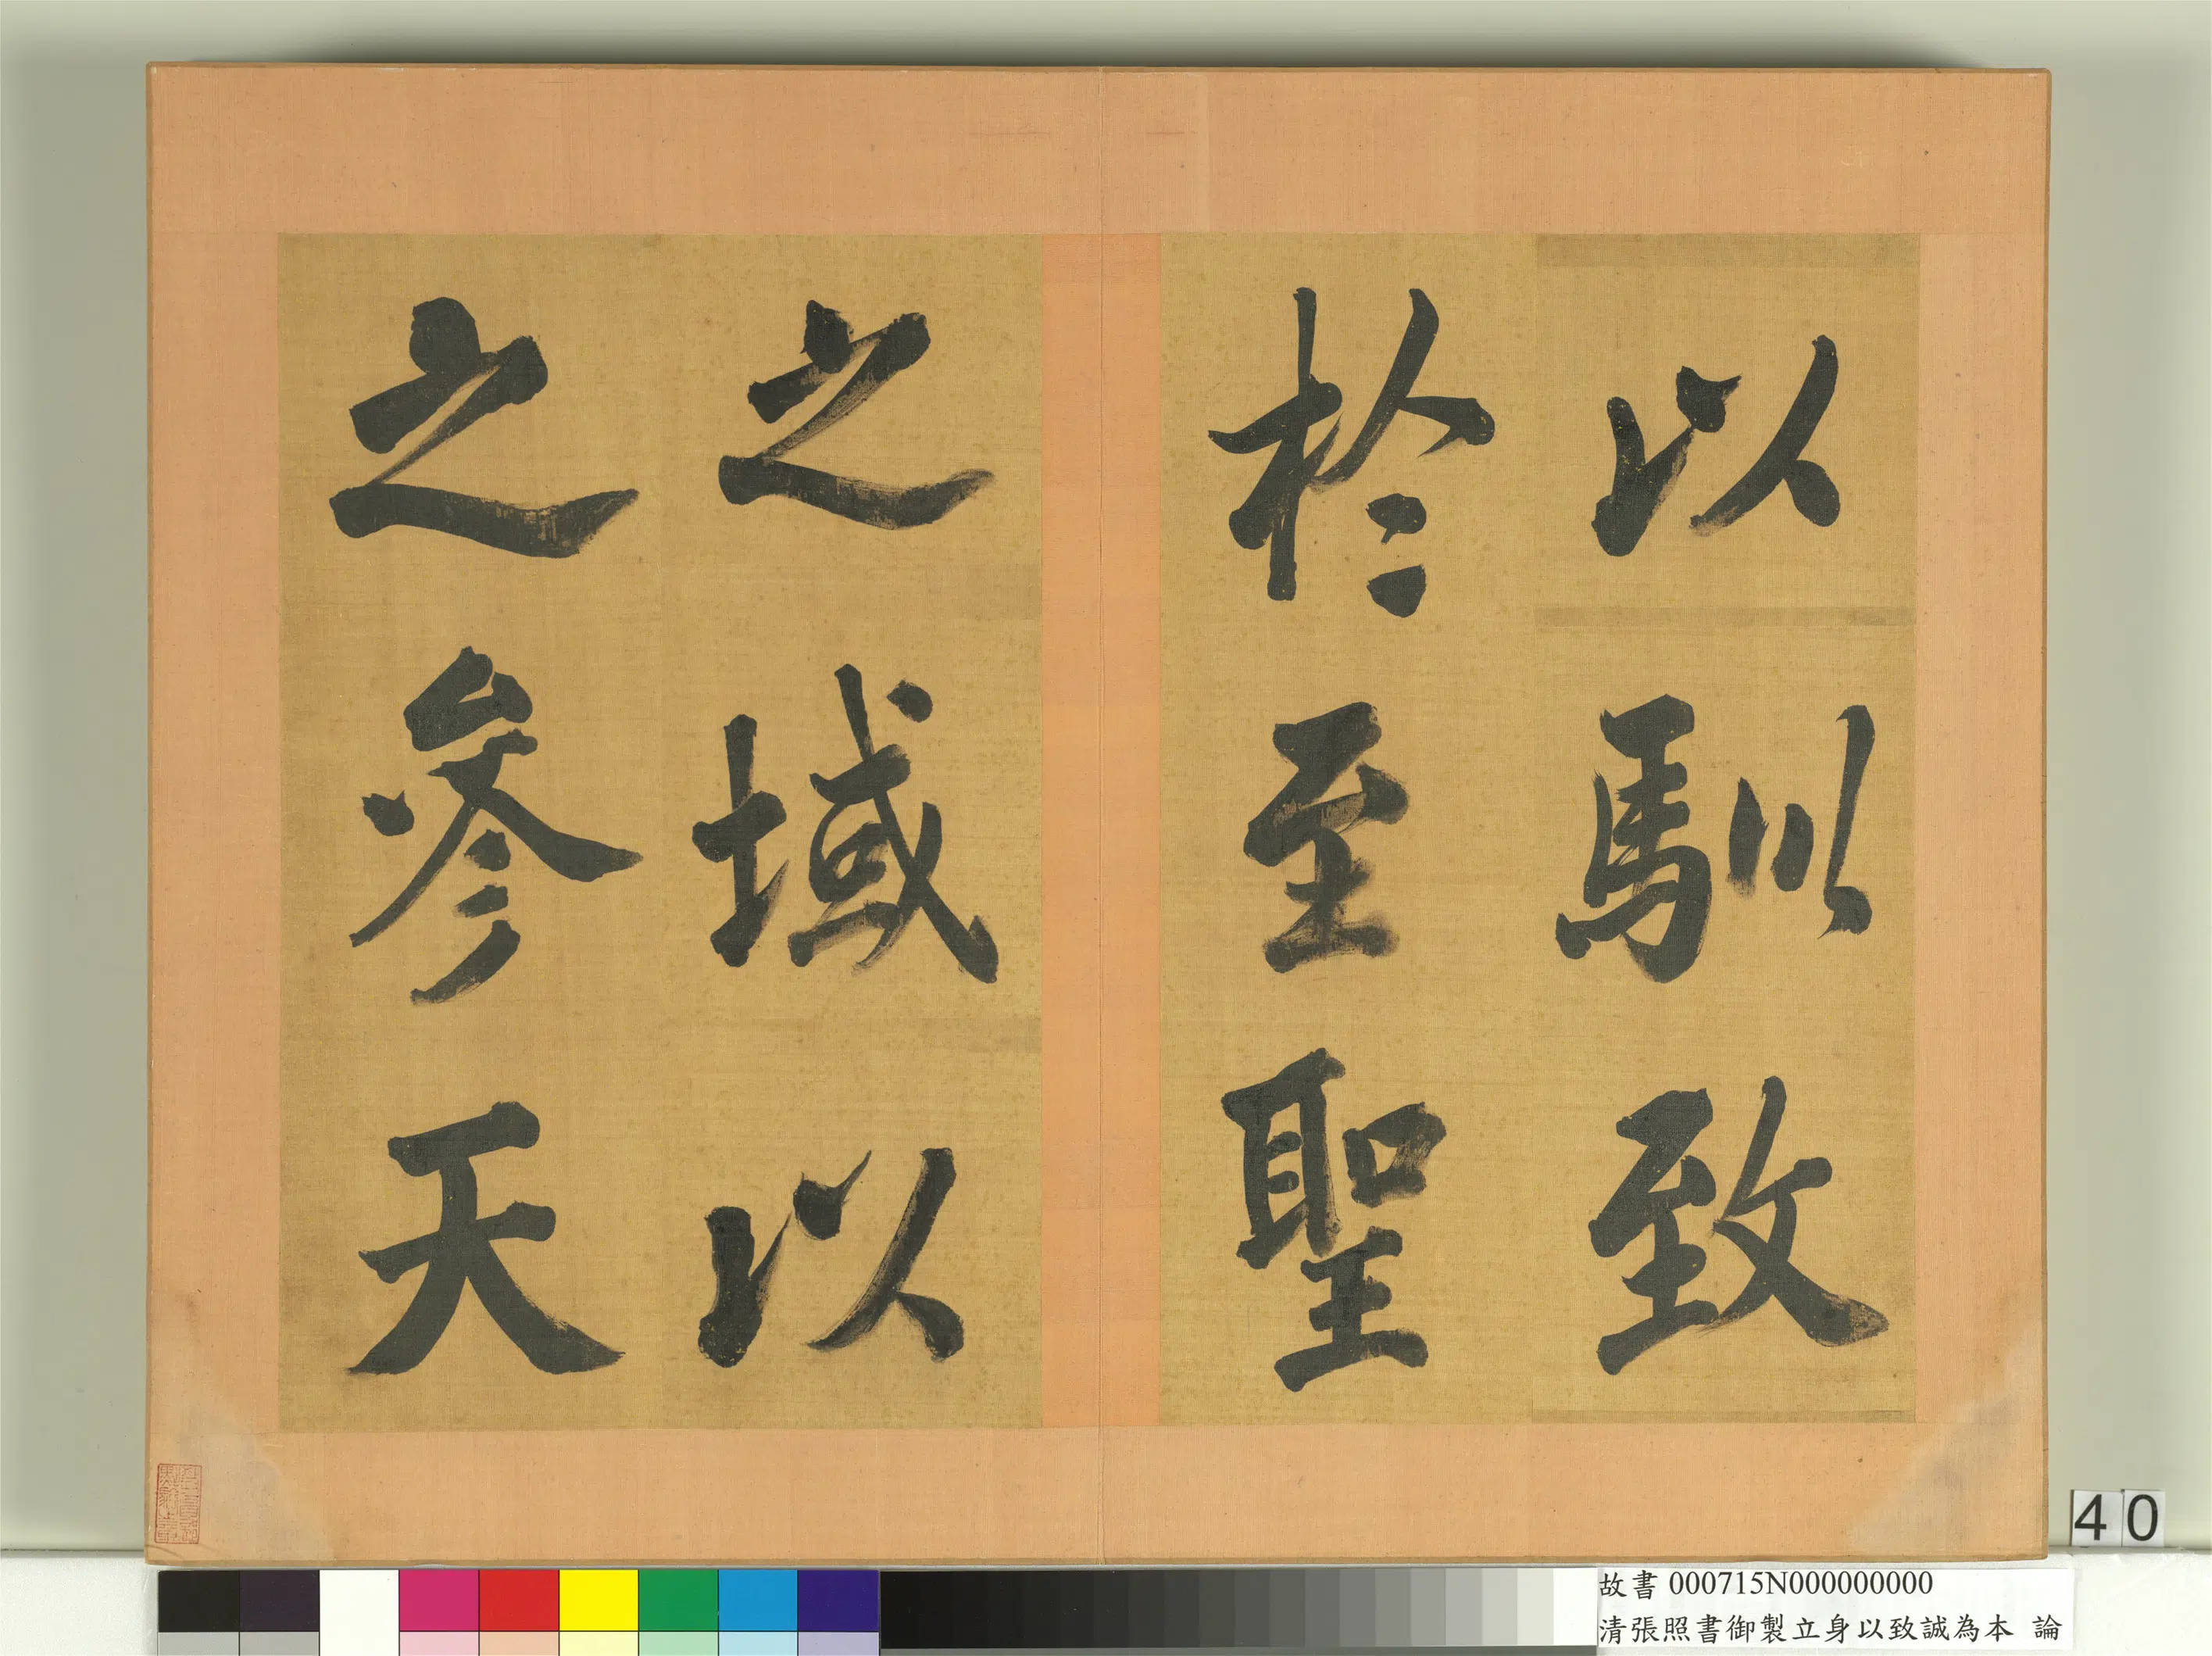 以馴致
於至聖
之域以
之參天
40
故書 000715N000000000
清張照書御製立身以致誠為本 論